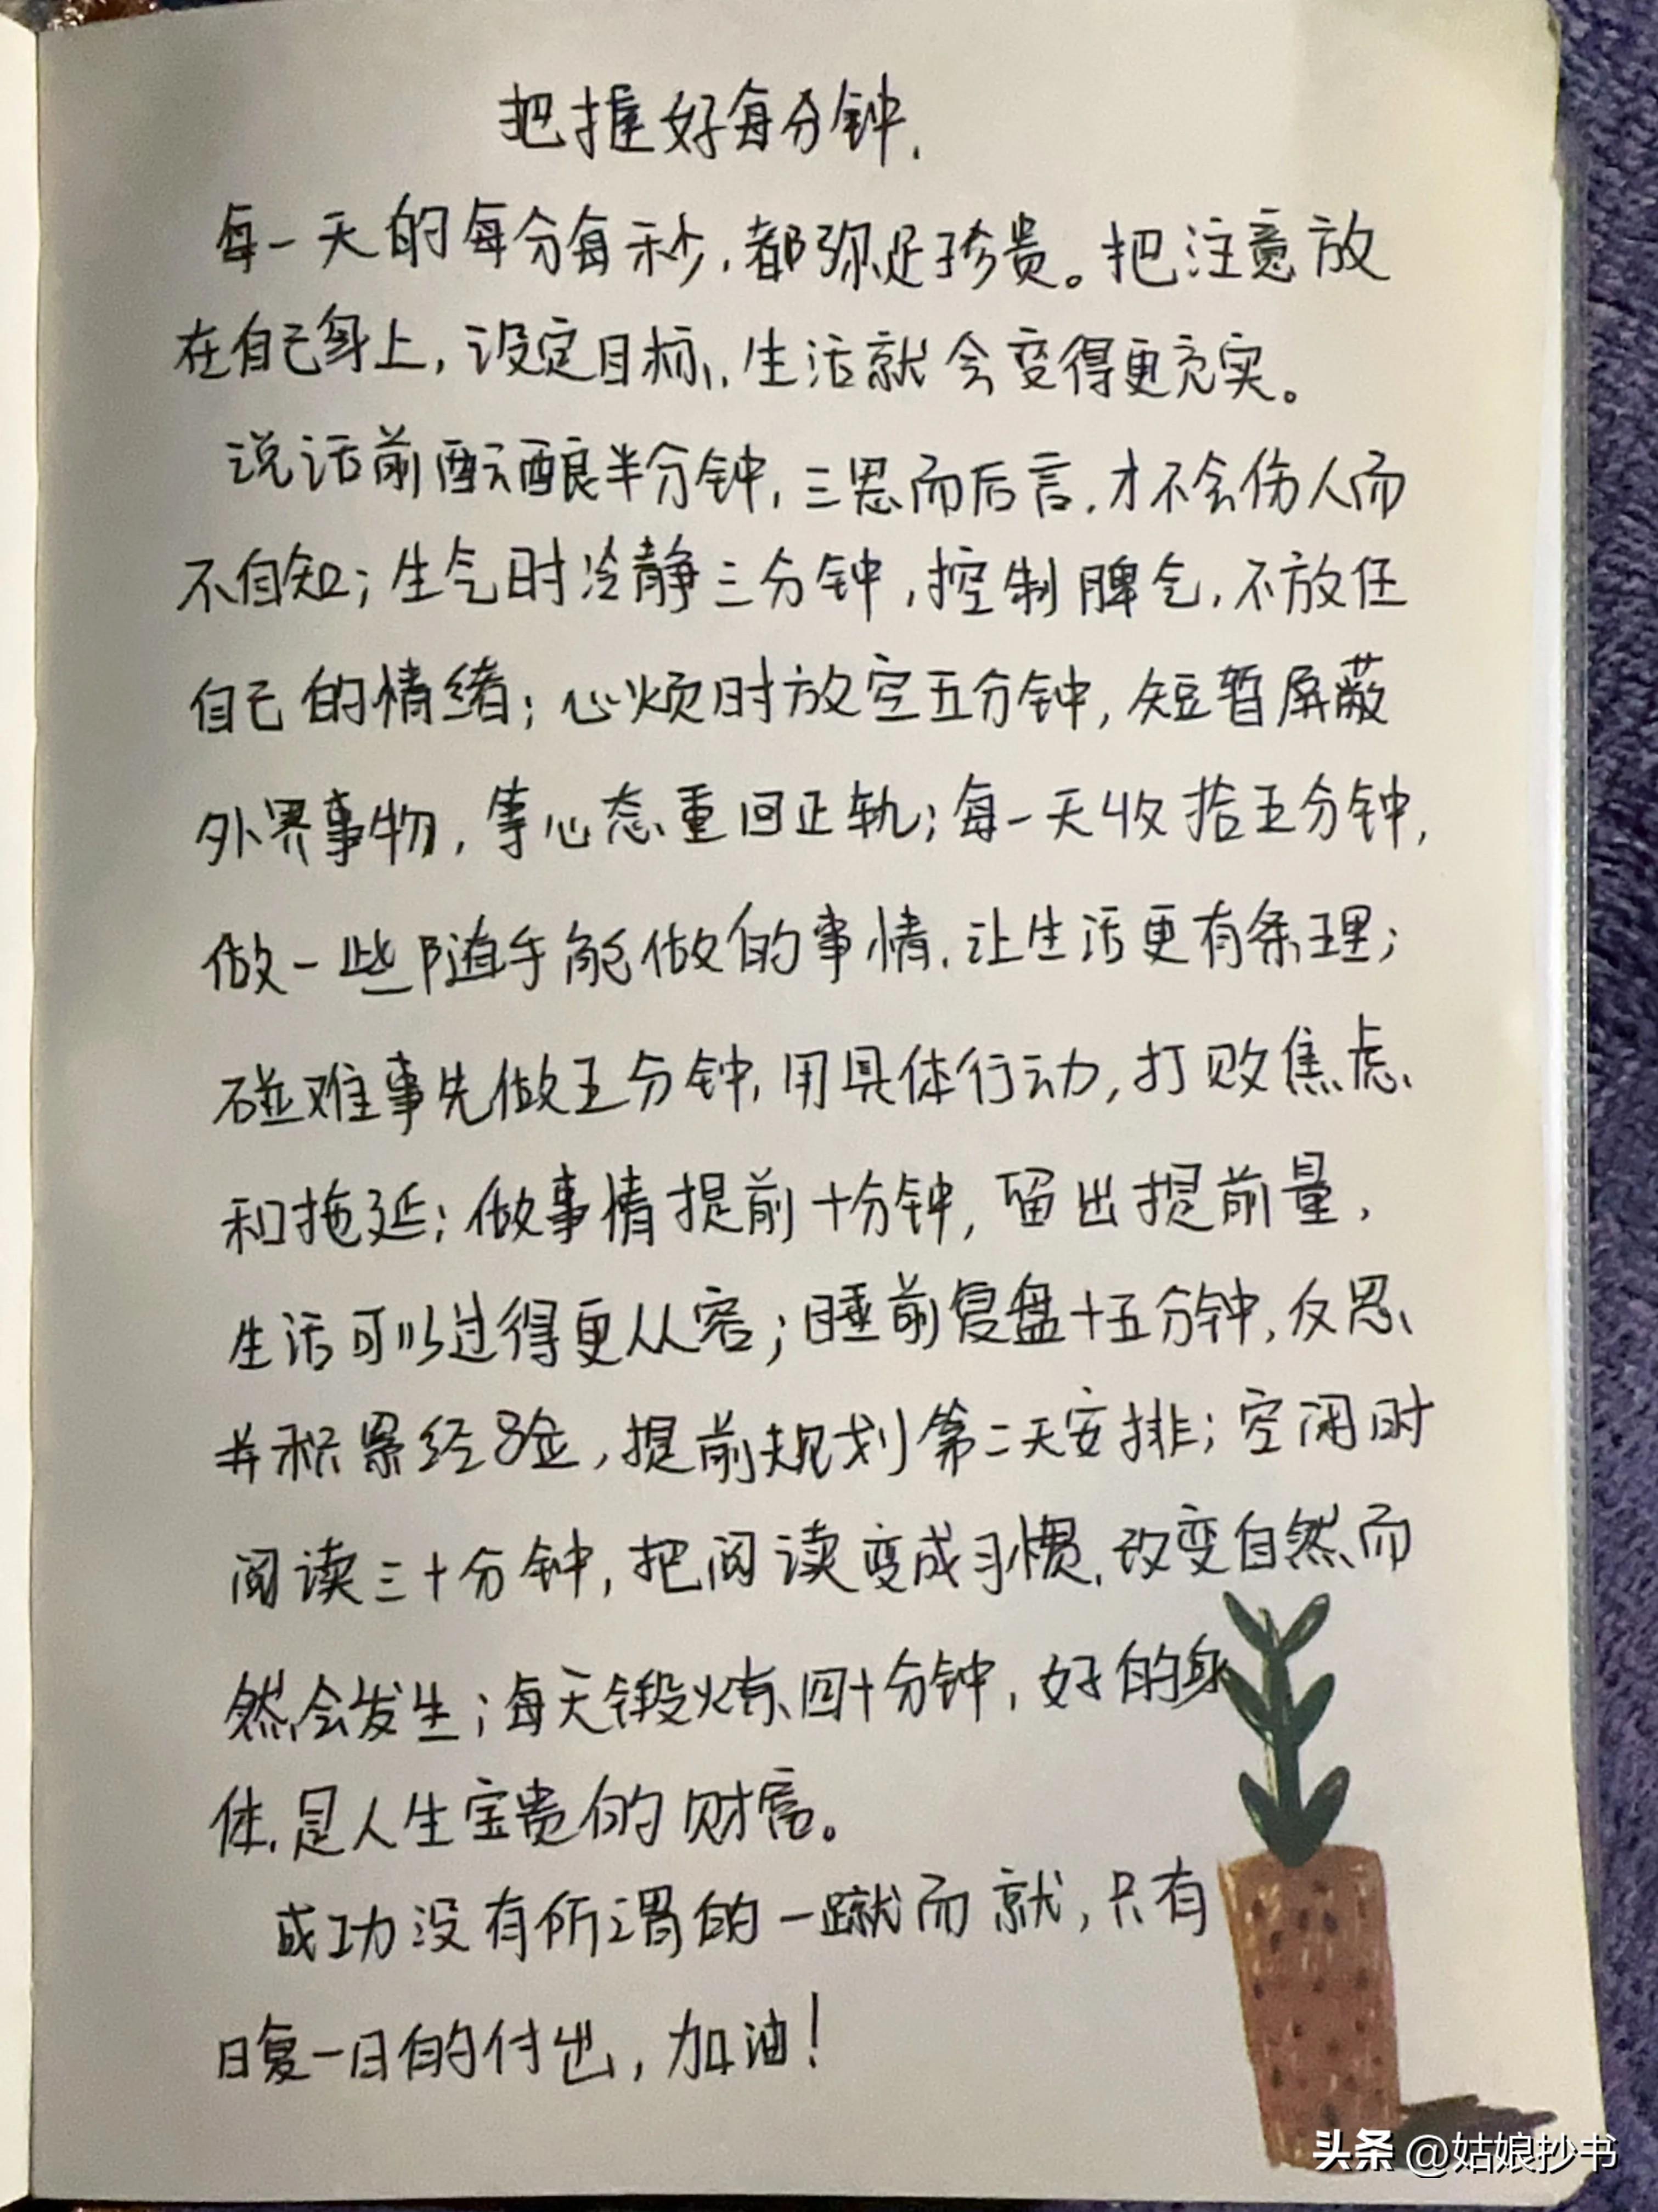 把握好每分钟.
每一天的每分每秒,都弥足珍贵。把注意放
在自己身上,设定目标,生活就会变得更充实。
说话前酝酿半分钟,三思而后言,才不会伤人而
不自知;生气时冷静三分钟,控制脾气,不放任
自己的情绪;心烦时放空五分钟,短暂屏蔽
外界事物,等心态重回正轨;每一天收拾五分钟,
做一些随手能做的事情,让生活更有条理;
碰难事先做五分钟,用具体行动,打败焦虑
和拖延;做事情提前十分钟,留出提前量,
生活可以过得更从容;睡前复盘十五分钟,反思
并积累经验,提前规划第二天安排;空闲时
阅读三十分钟,把阅读变成习惯,改变自然而
然会发生;每天锻炼四十分钟,好的身
体,是人生宝贵的财富。
成功没有所谓的一蹴而就,只有
日复一日的付出,加油!
头条 @姑娘抄书